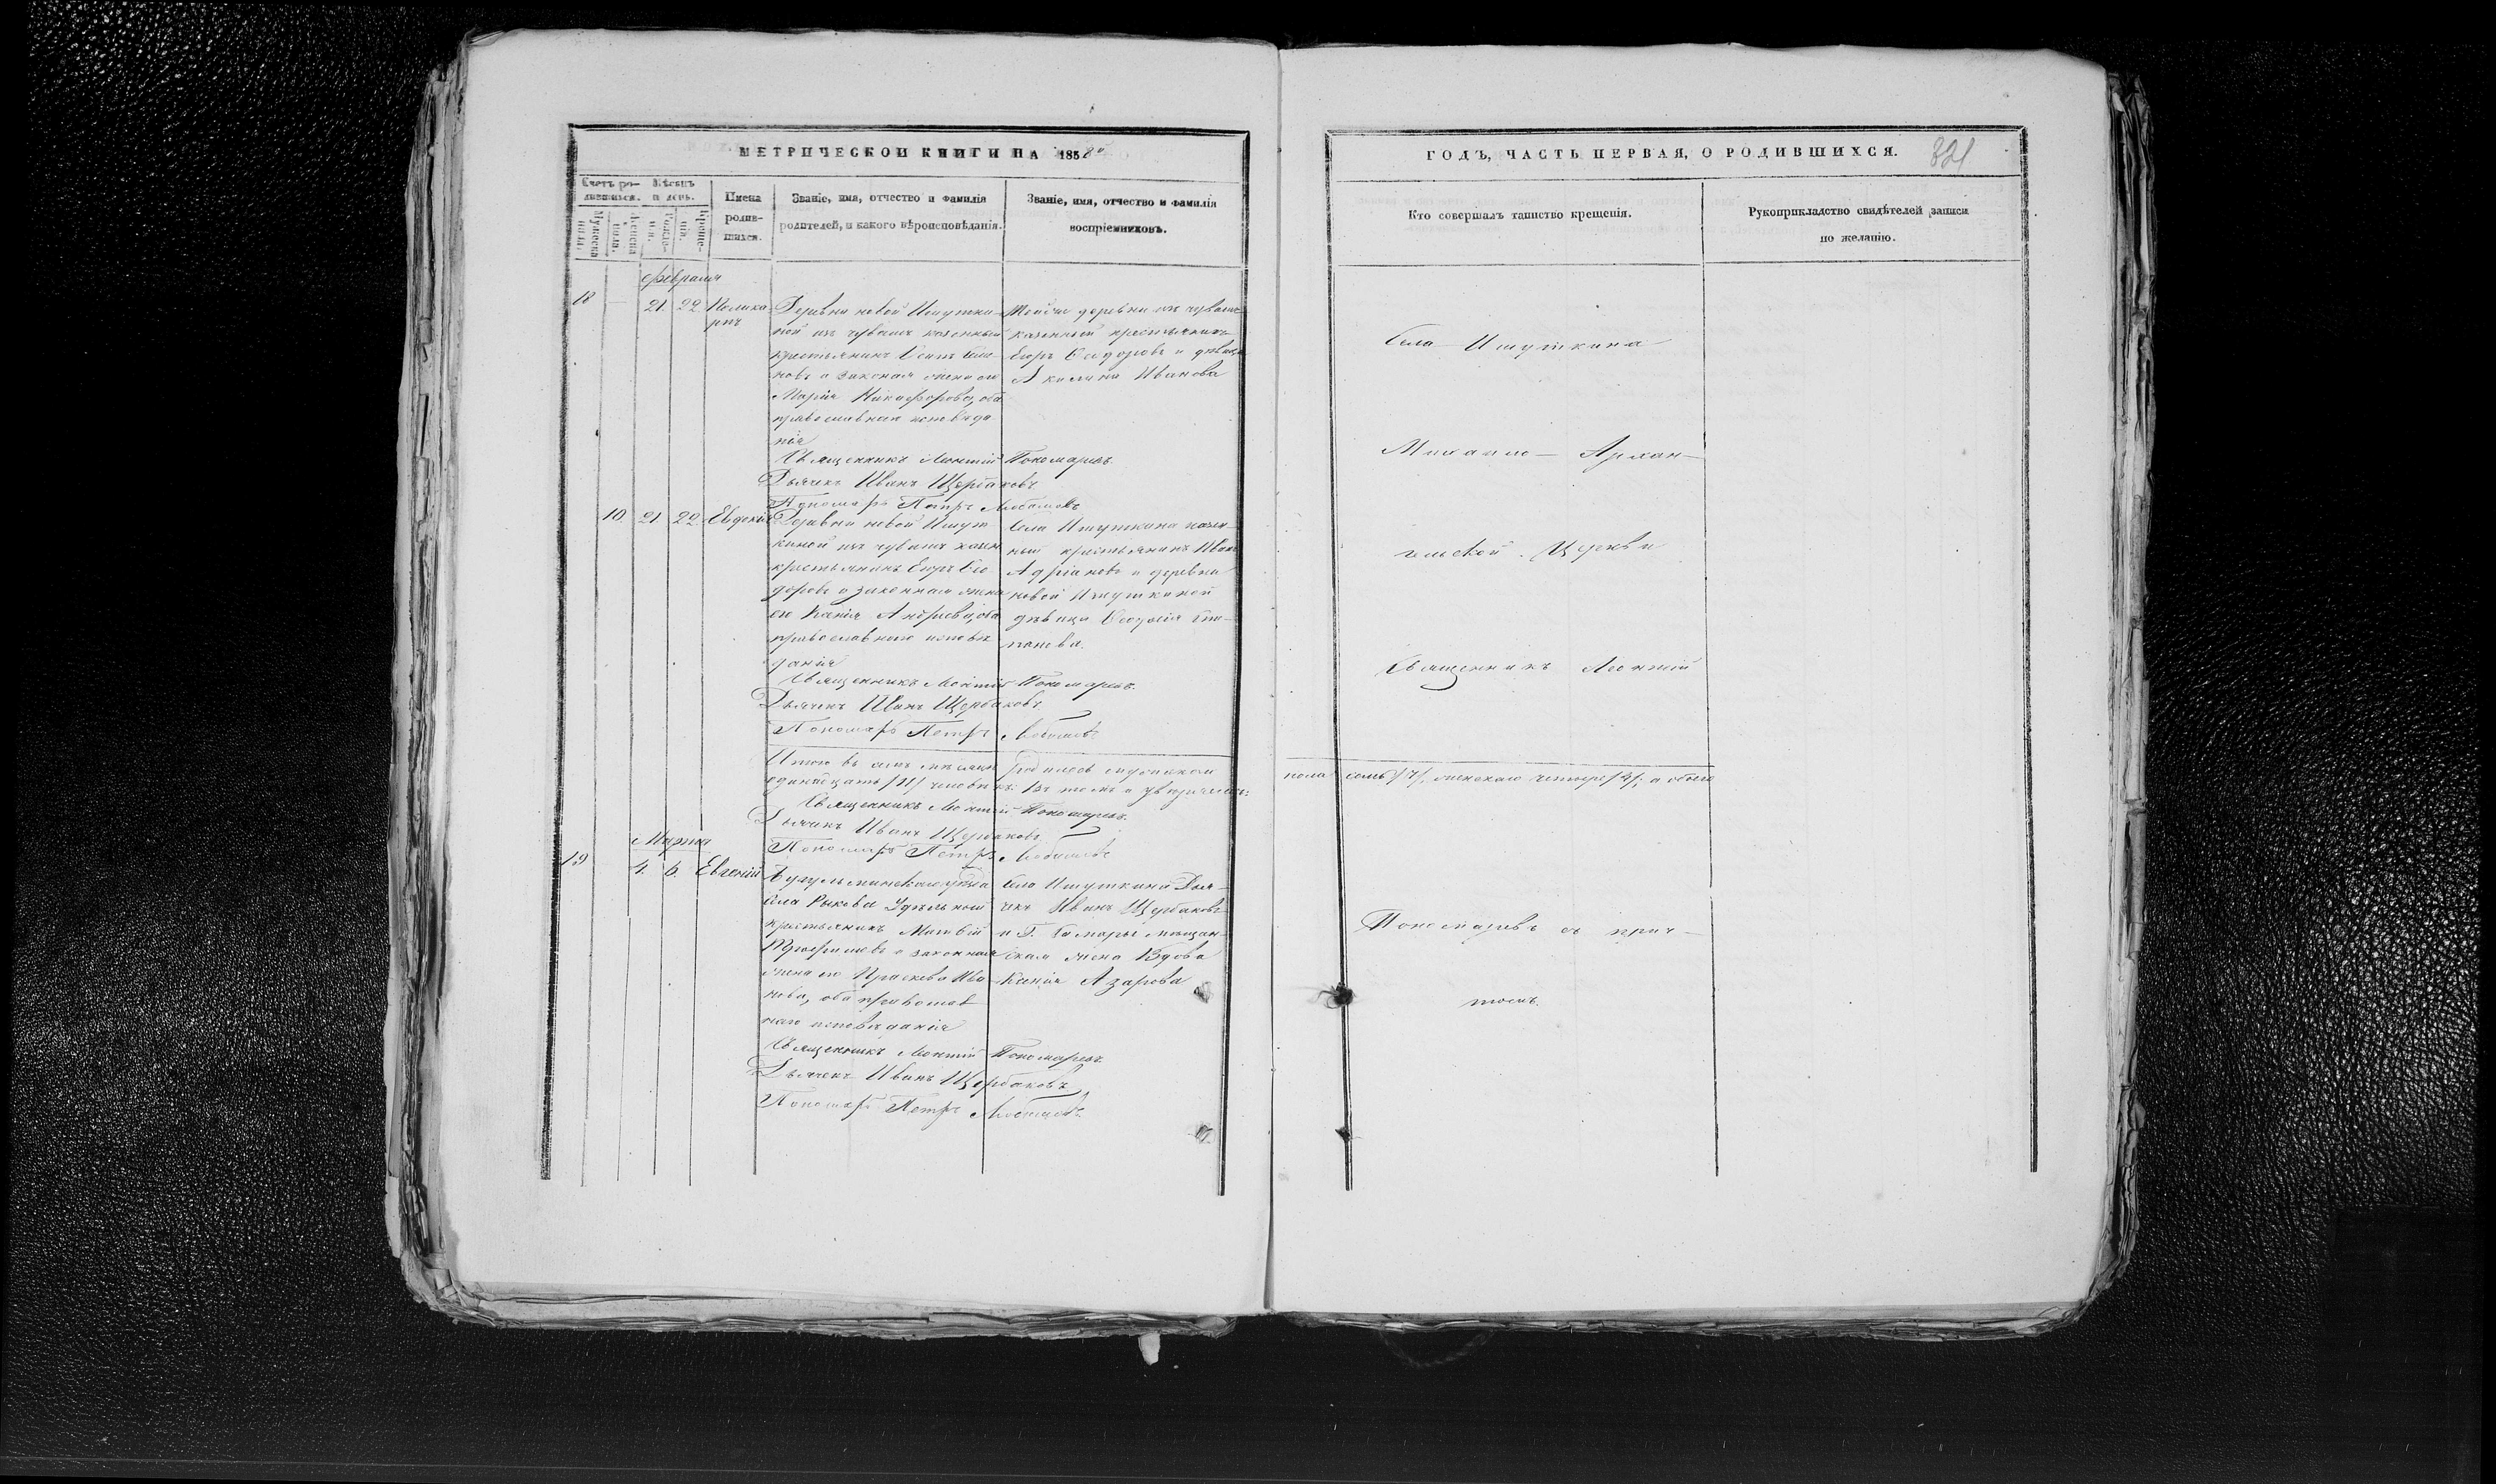 МЕТРИЧЕСКОЙ КНИГИ НА 1858й
Счетъ родившихся.
Мѣсяцъ и день.
Мужеска пола.
Женска пола.
Рожденія.
Крещенія.
Имена родившихся.
Званіе, имя, отчество и фамилія
родителей, и какого вѣроисповѣданія.
Званіе, имя, отчество и фамилія
воспріемниковъ.
Февраля
18 — 21. 22. Поликарпъ
Деревни новой Ишуткиной
изъ чувашъ казенный
крестьянинъ Осипъ
и законная жена его
Марія Никифорова, оба
православнаго исповѣданія
Тойже деревни изъ чувашъ
казенный крестьянинъ
Егоръ Сидоровъ и дѣвица
Акилина Иванова
Священникъ Леонтій Пономаревъ.
Дьячекъ Иванъ Щербаковъ
Пономарь Петръ
10. 21. 22. Евдокія
Деревни новой Ишуткиной
изъ чувашъ казен
крестьянинъ Егоръ
и законная жена
его Ксенія Андреева, оба
православнаго исповѣданія
Села Ишуткина казенный
крестьянинъ Иванъ
Адріановъ и деревни
новой Ишуткиной
дѣвица Степанова.
Священникъ Леонтій Пономаревъ.
Дьячекъ Иванъ Щербаковъ.
Пономарь Петръ
Итого въ семъ мѣсяцѣ родилось мужескаго
пола семь /7/, женскаго четыре /4/; а обоего
одинадцать /11/ человѣкъ:
Священникъ Леонтій Пономаревъ.
Дьячекъ Иванъ Щербаковъ
Пономарь Петръ
Марта
19 4. 6. Евгеній
Бугульминскаго уѣзда
села Рыкова Удѣльный
крестьянинъ Матвій
Трофимовъ и законная
жена его Прасковья Иванова,
оба православнаго исповѣданія
Села Ишуткина Дьячекъ
Иванъ Щербаковъ
и Г. Самары мѣщанская
жена Вдова
Ксенія Азарова
Священникъ Леонтій Пономаревъ
Дьячекъ Иванъ Щербаковъ
Пономарь Петръ
ГОДЪ, ЧАСТЬ ПЕРВАЯ, О РОДИВШИХСЯ.
321
Кто совершалъ таинство крещенія.
Рукоприкладство свидѣтелей записи
по желанію.
Села Ишуткина
Михаило-Архан-
гельской Церкви
Священникъ Леонтій
Пономаревъ съ прич-
томъ.